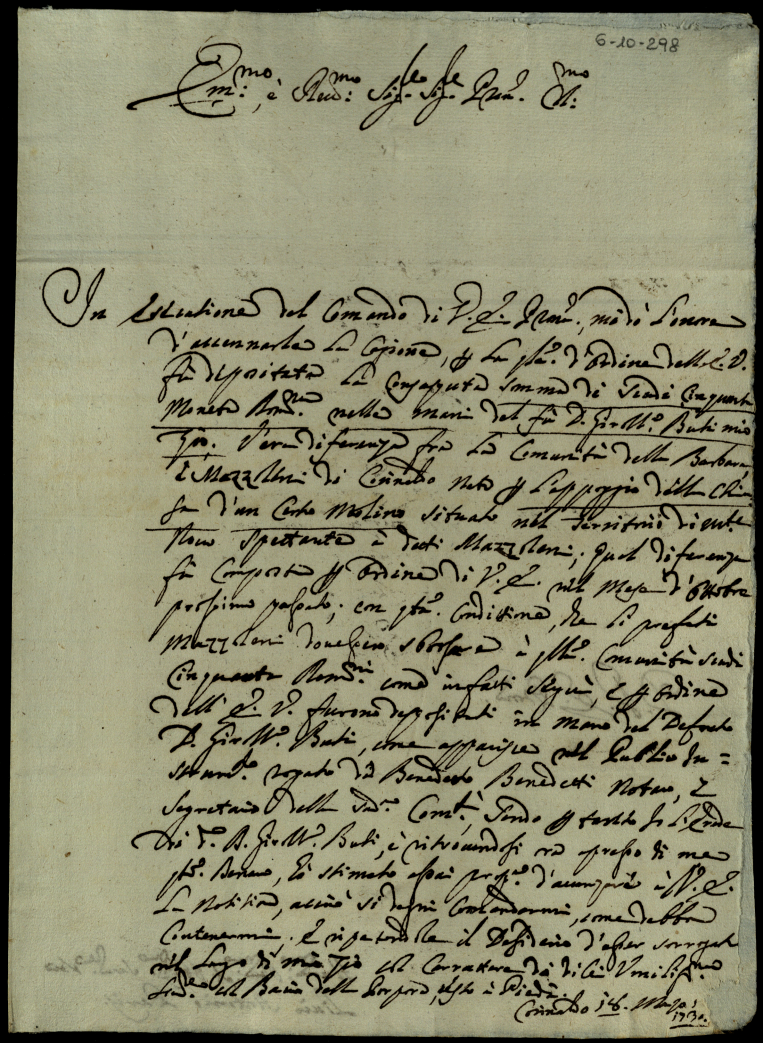 6-10-298
Em:mo, è Reu:mo Sig.re Sig.re Pron. C:mo
In Essecutione del Comando di V. E. Prone., mi dò l'onore
d'accennarle la Cagione, p la q.le d'ordine dell'E. V.
fù depositata la consaputa somma di Scudi Cinquanta
Moneta Rom.na nelle mani del fù D. Girol.o Buti mio
Zio. Vera diferenza frà la Comunità della Barbara,
è Mazzoleni di Corinaldo p l'appoggio della Chiu
sa d'un Certo Molino situato nel Territorio di
Spettante à detti Mazzoleni; qual diferenza
fù Composta p ordine di V. E. nel Mese d'Ottobre
prossimo passato; con Conditione, che li prefati
Mazzoleni dovessero sborsare à Comunità scudi
Cinquanta Rom.ni come infatti seguì, e p ordine
dell'E. V. furono depositati in mano del Defonto
D. Girol.o Buti, come apparisce nel Publico In=
strum.o rogato dà Benedetto Benedetti Notaro, e
Segretario della Com.tà, Sendo p tanto Io l'Erede
del D. Girol.o Buti, è ritrovandosi ora apresso di me
Denaro, hò stimato assai d'avanzare à V. E.
la Notitia, acciò si degni Comandarmi, come debba
Contenermi; E ripetendole il Desiderio d'esser sorrogato
nel luogo di mio Zio col Carattere di
col Bacio della Porpora, resto à Piedi.
Corinaldo 18. Mag.o 1730.